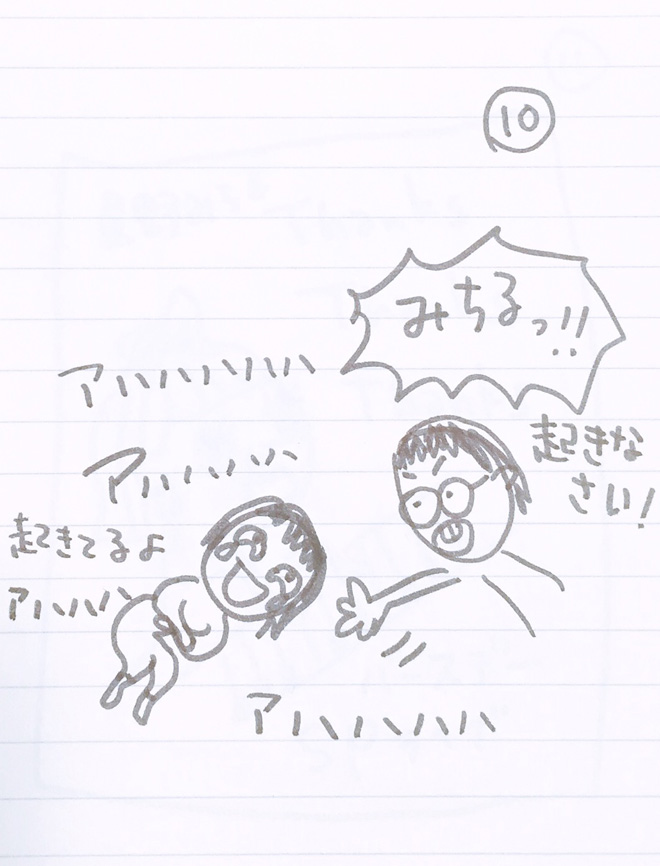 10
みちるっ!!
起きな
さい!
アハハハハハ
アハハハハ
起きてるよ
アハハハハ
アハハハハハ